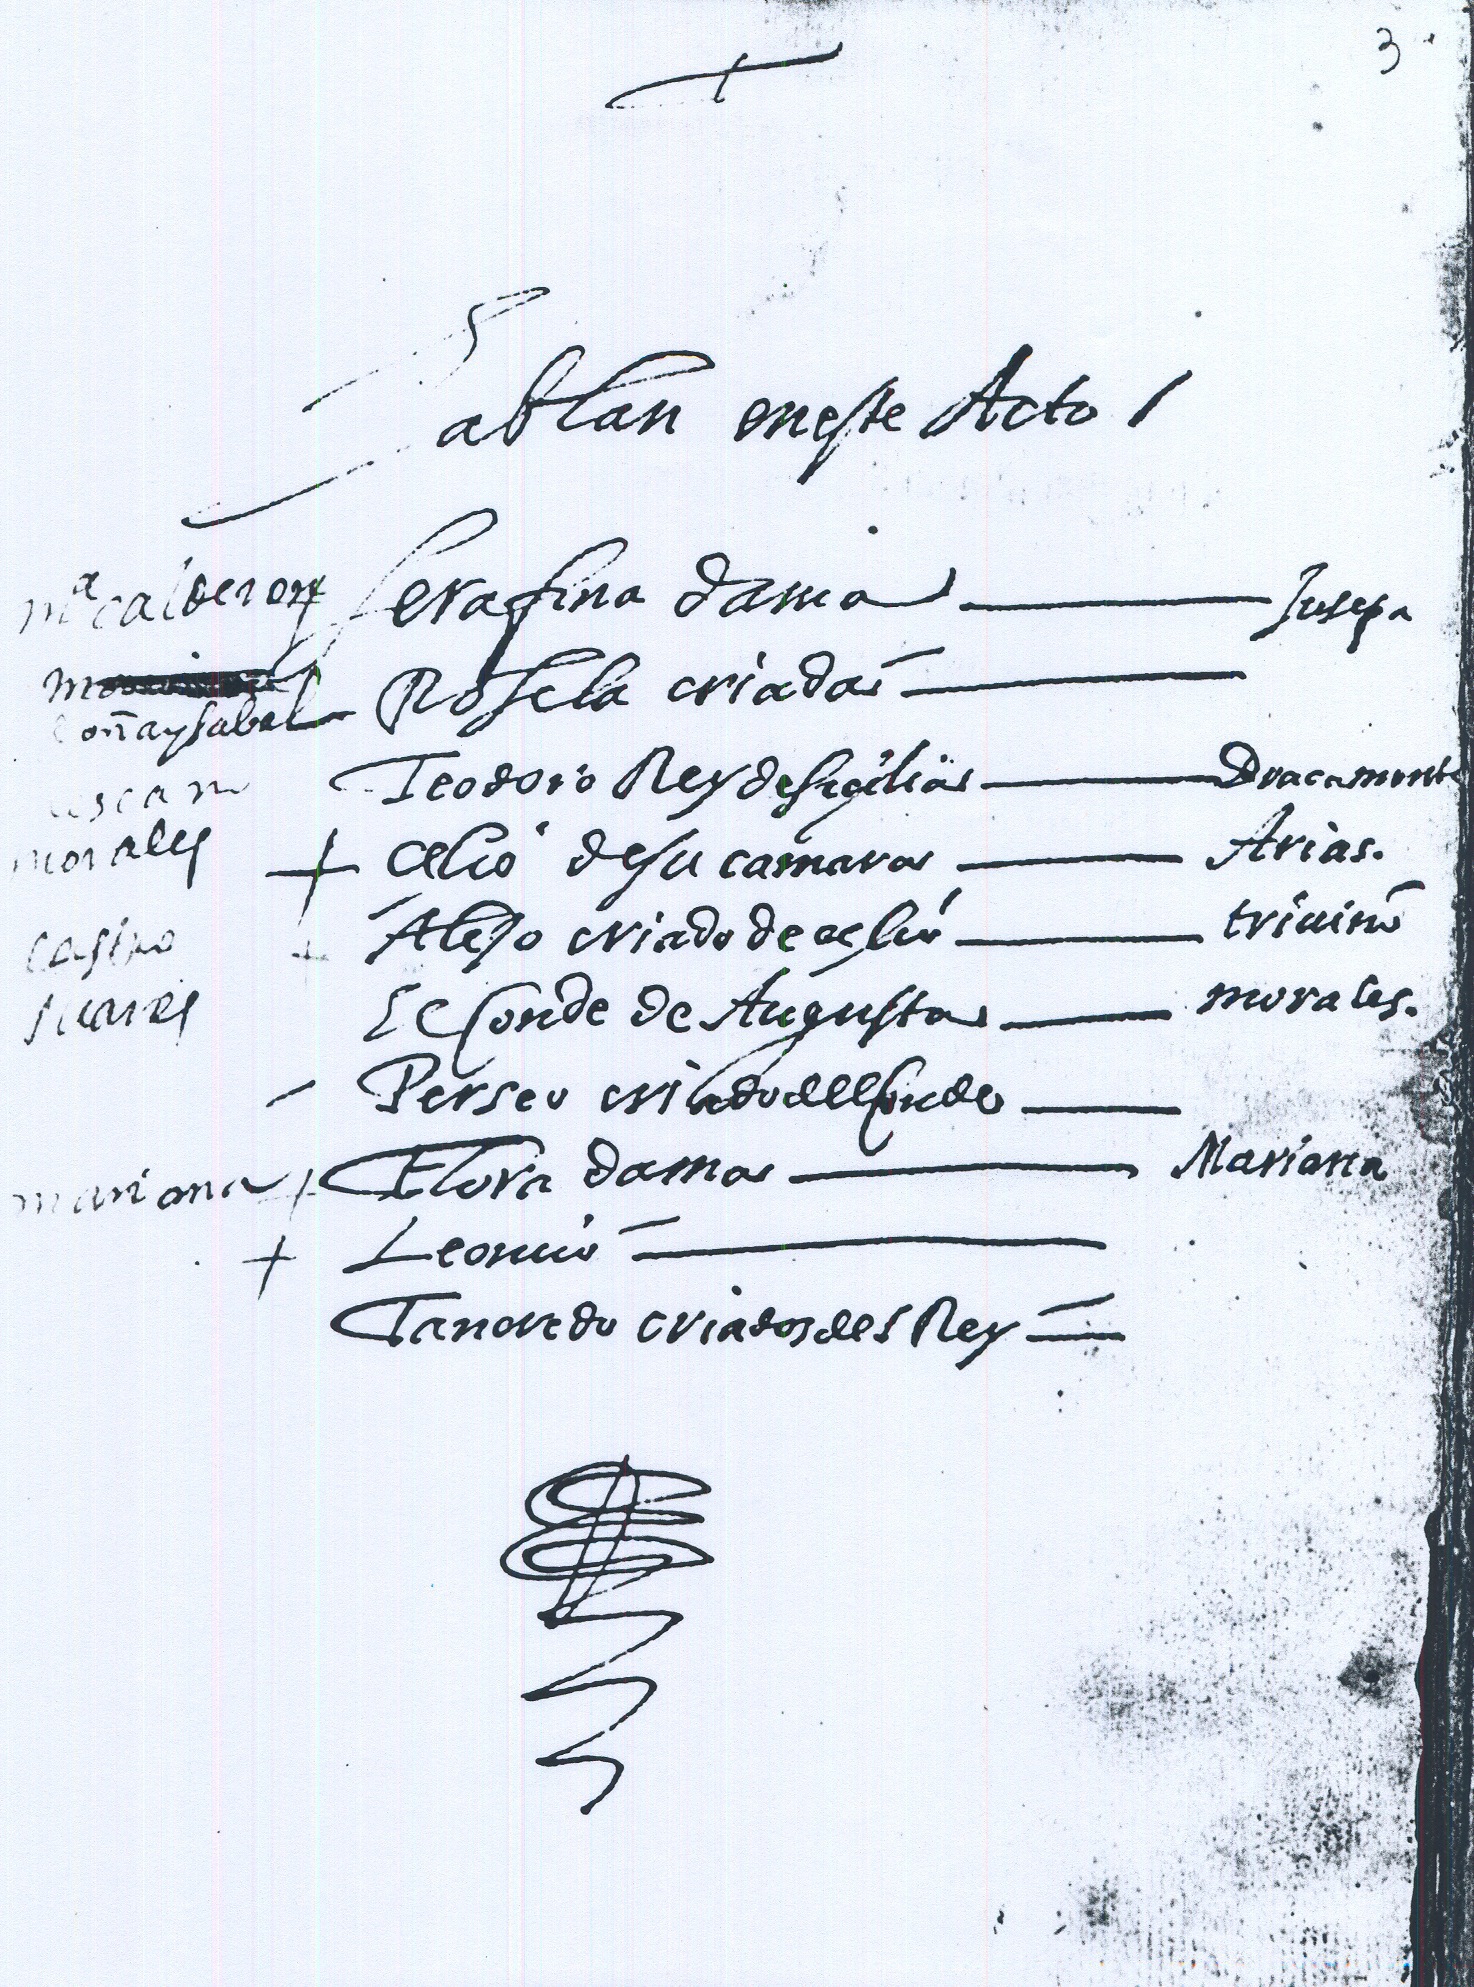 3
ablan en este Acto 1
mª calderon Serafina dama Jusepa
doña ysabel Rosela criada
Teodoro Rey de Sicilia Bracamonte
morales + Celio de su camara Arias.
castro + Alejo criado de celio triuiño
suares El Conde de Augusta morales.
Perseo criado del Conde
mariana + Flora dama Mariana
+ Leonicio
Tancredo criados del Rey